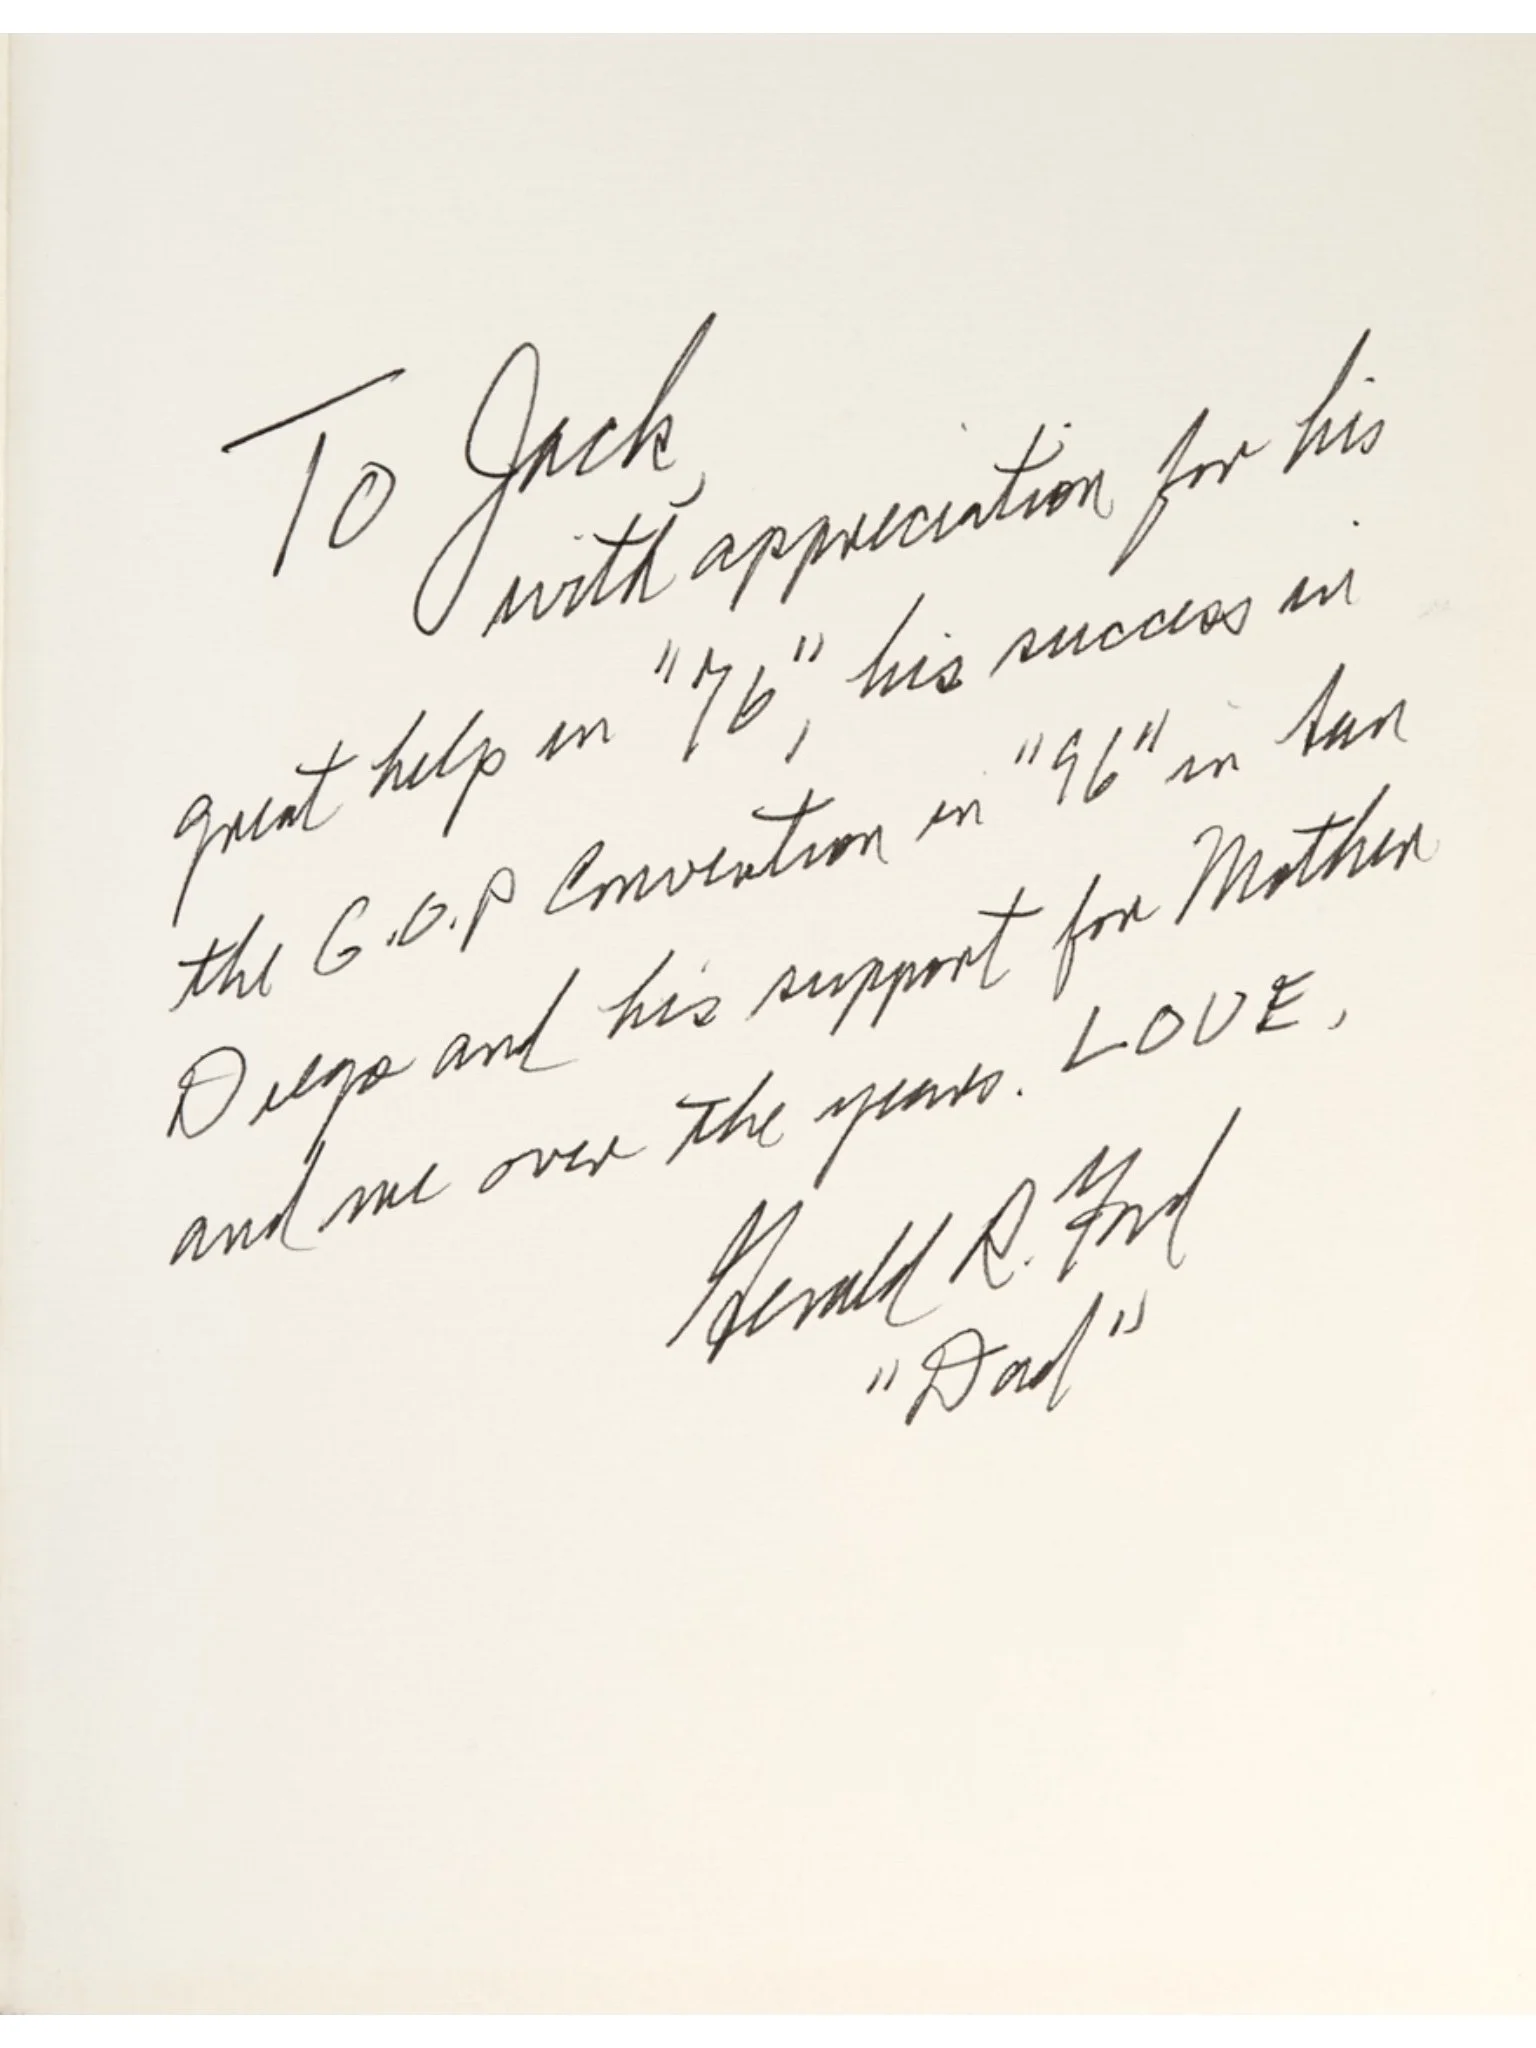 To Jack,
with appreciation for his
great help in "76", his success in
the G.O.P Convention in "96" in San
Diego and his support for Mother
and me over the years. LOVE,
Gerald R. Ford
"Dad"